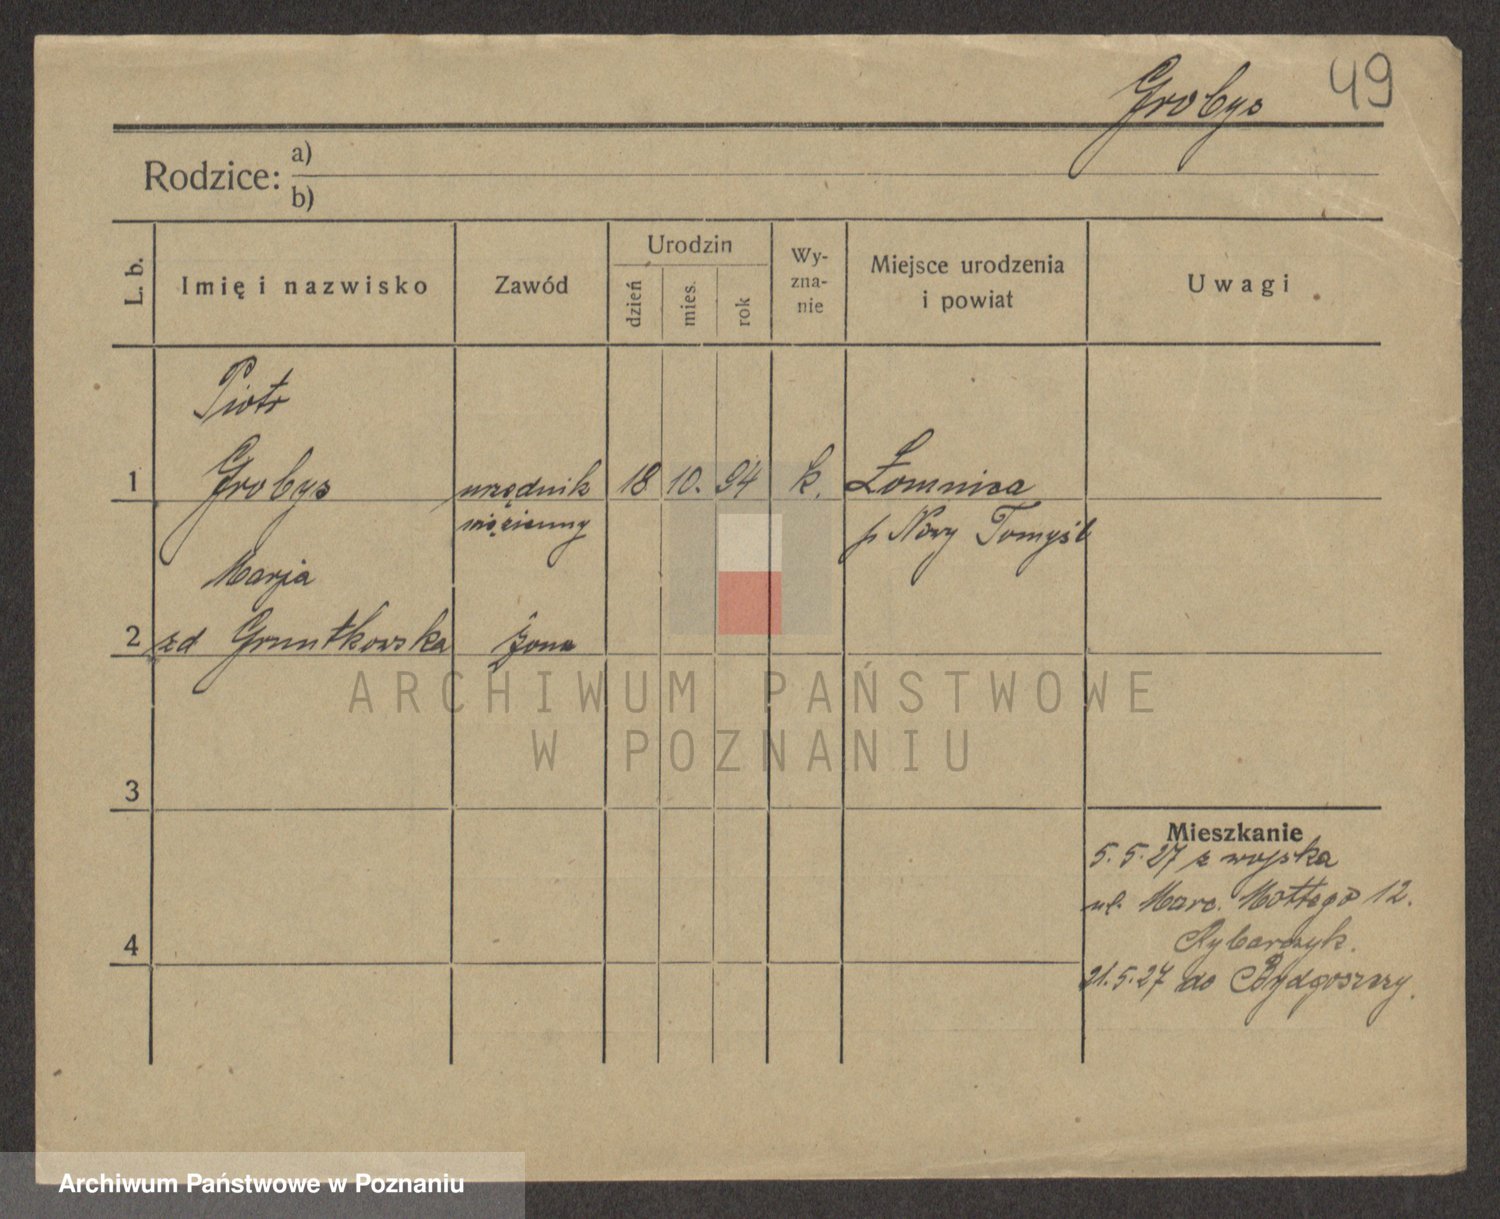 Grobys 49
Rodzice: a)
b)
L. b.
Imię i nazwisko
Zawód
Urodzin
dzień
mies.
rok
Wy-
zna-
nie
Miejsce urodzenia
i powiat
Uwagi
Piotr
1 Grobys urzędnik 18 10. 94 k. Łomnica
więzienny p Nowy Tomyśl
Marja
2 zd Gruntkowska żona
3
4
Mieszkanie
5. 5. 27 z wojska
ul. Marc. Mottego 12.
Rybarczyk.
21. 5. 27 do Bydgoszczy.
ARCHIWUM PAŃSTWOWE
W POZNANIU
Archiwum Państwowe w Poznaniu